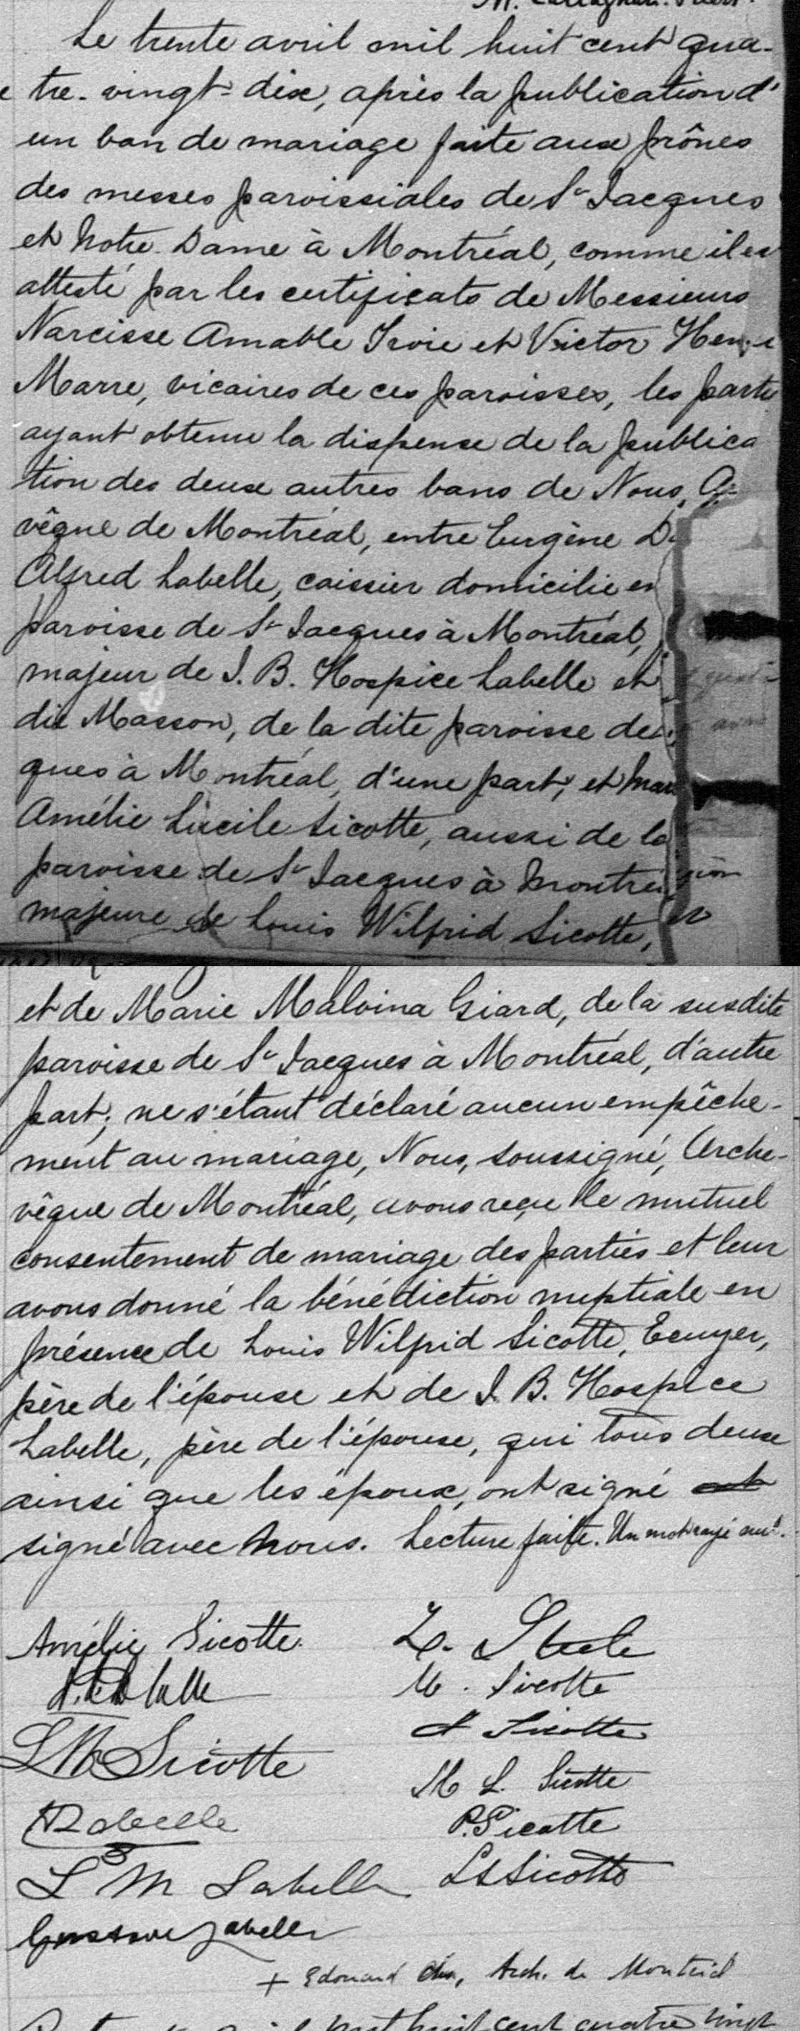 M. Callaghan. Ptre.
Le trente avril mil huit cent qua-
tre-vingt-dix, après la publication d'
un ban de mariage faite aux prônes
des messes paroissiales de St Jacques
et Notre Dame à Montréal, comme il es
attesté par les certificats de Messieurs
Narcisse Amable Troie et Victor Henri
Marre, vicaires de ces paroisses, les partie
ayant obtenu la dispense de la publica
tion des deux autres bans de Nous,
vêque de Montréal, entre Eugène
Alfred Labelle, caissier domicilié en
paroisse de St Jacques à Montréal,
majeur de J. B. Hospice Labelle et
dit Masson, de la dite paroisse de
ques à Montréal, d'une part; et Marie
Amélie Lucile Sicotte, aussi de la
paroisse de St Jacques à Montréal
majeure de Louis Wilfrid Sicotte,
et de Marie Malvina Giard, de la susdite
paroisse de St Jacques à Montréal, d'autre
part; ne s'étant déclaré aucun empêche-
ment au mariage, Nous, soussigné, Arche-
vêque de Montréal, avons reçu le mutuel
consentement de mariage des parties et leur
avons donné la bénédiction nuptiale en
présence de Louis Wilfrid Sicotte, Ecuyer,
père de l'épouse et de J. B. Hospice
Labelle, père de l'épouse, qui tous deux
ainsi que les époux, ont signé ont
signé avec Nous. Lecture faite. Un mot rayé nul.
Amélie Sicotte. Z.
Labelle M. Sicotte
L W Sicotte A Sicotte
Labelle M L. Sicotte
P. Sicotte
L M Labelle Ls Sicotte
Gustave Labelle
+ Edouard Chs, Arch. de Montréal
huit cent quatre vingt